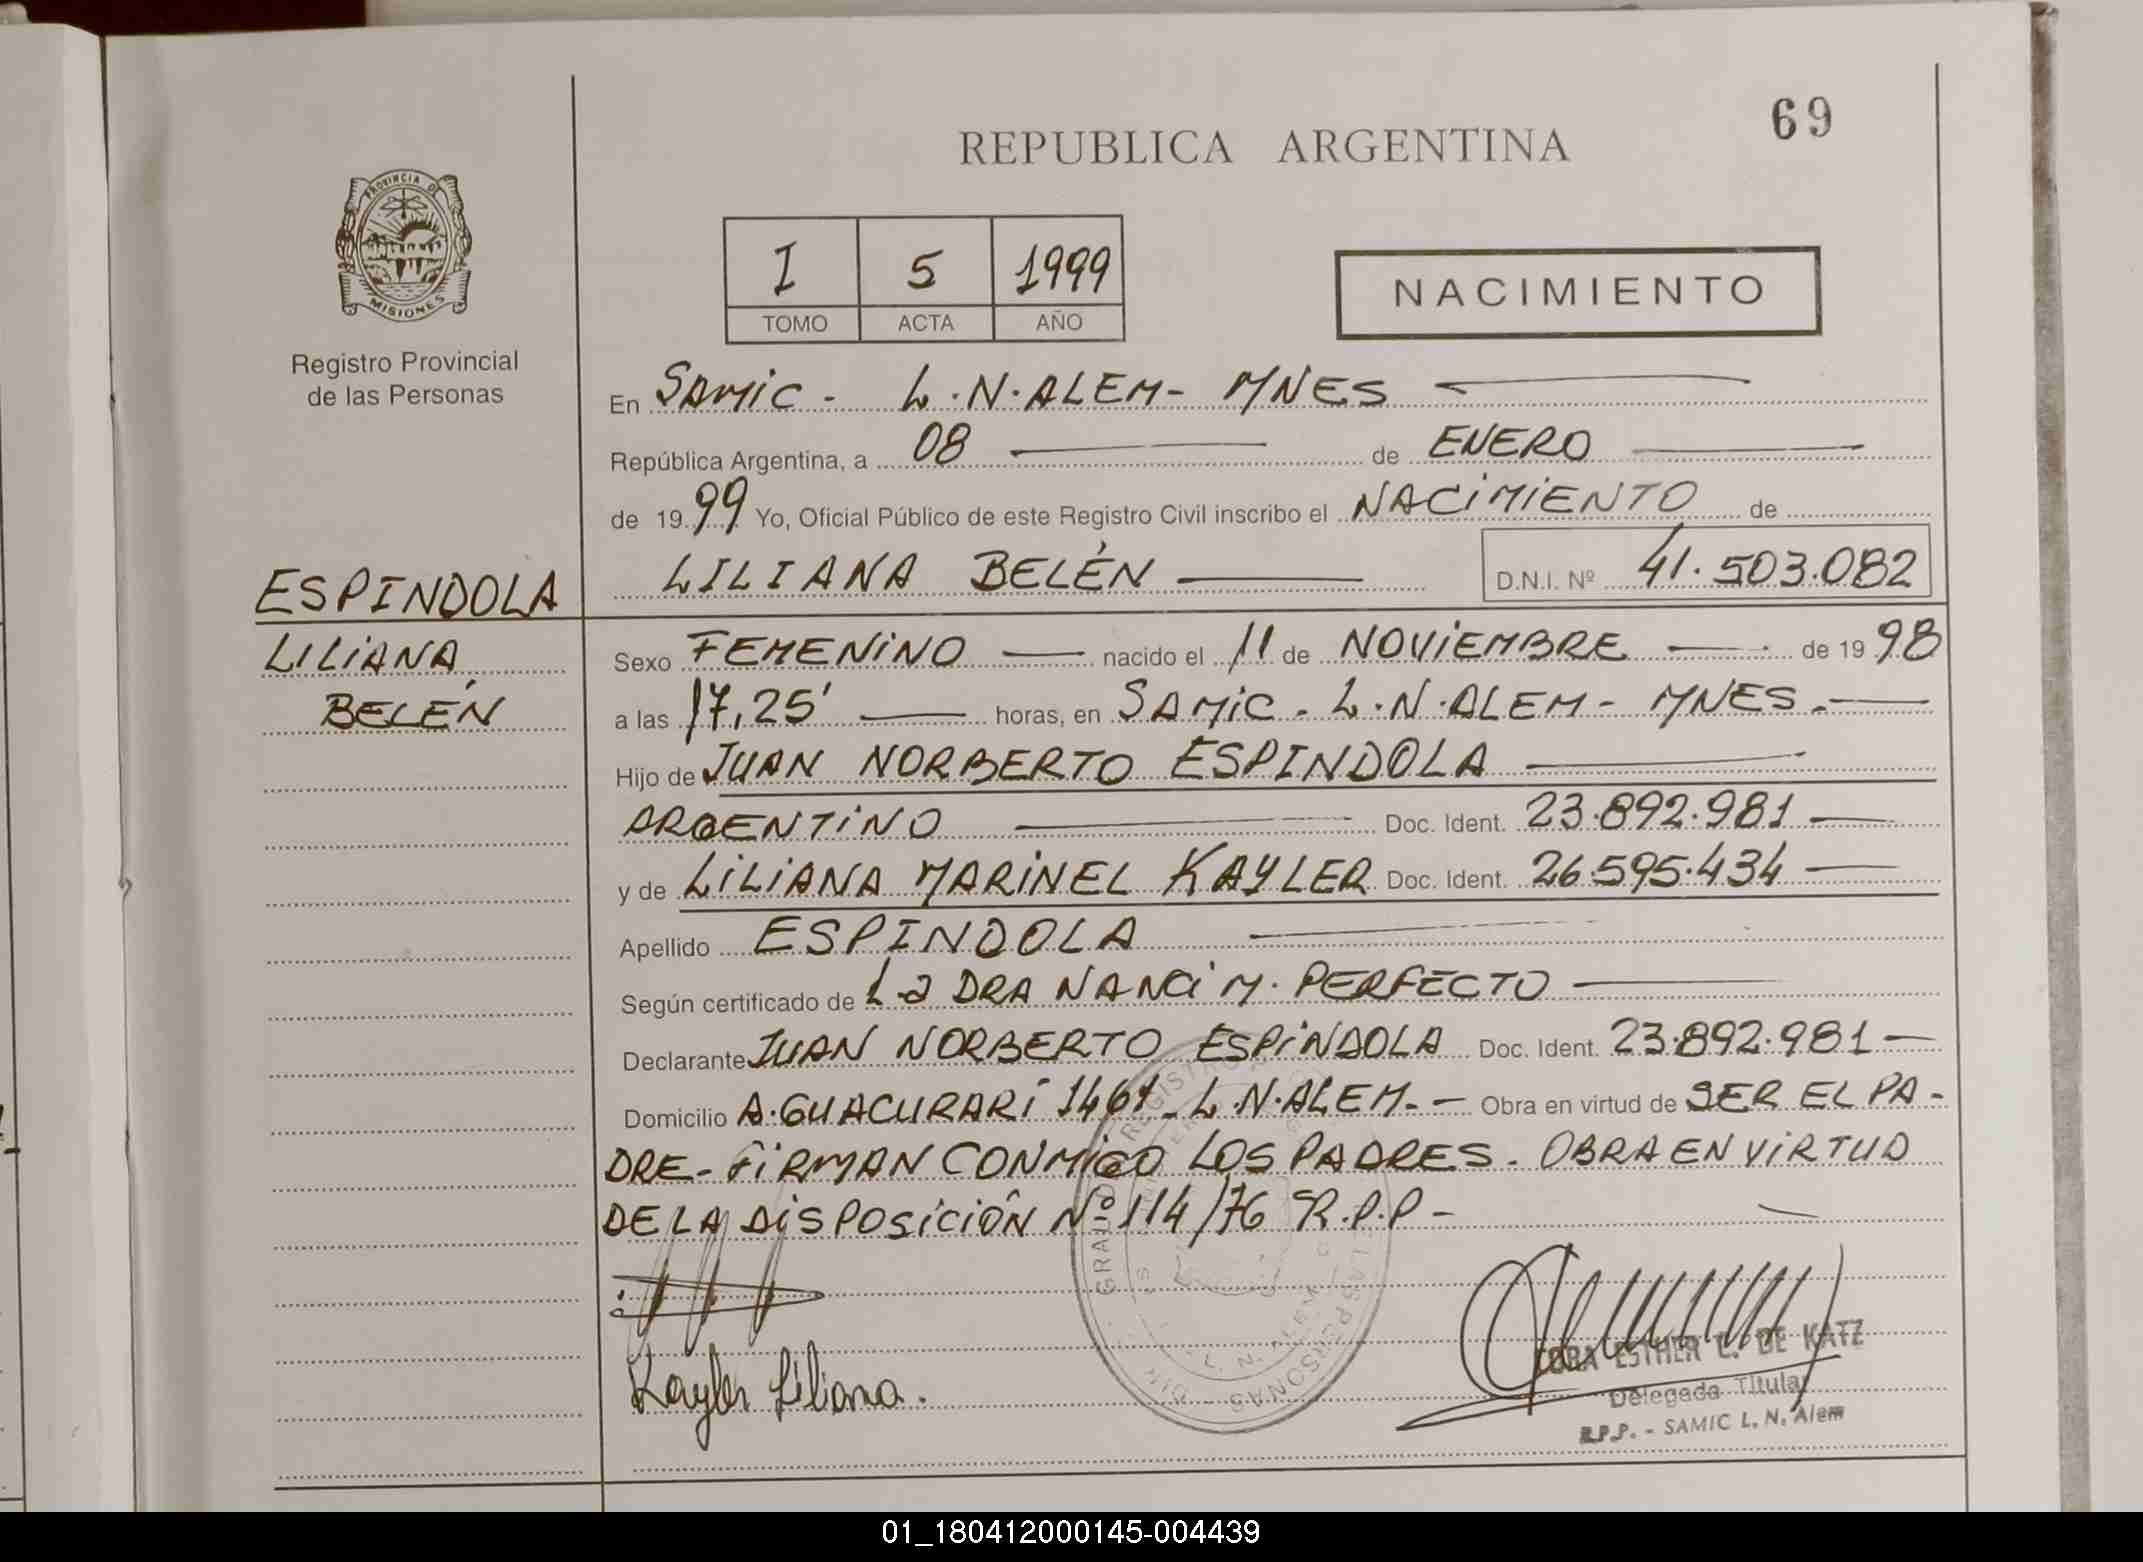 69
REPUBLICA ARGENTINA
PROVINCIA DE
MISIONES
Registro Provincial
de las Personas
I 5 1999
TOMO ACTA AÑO
NACIMIENTO
En SAMIC - L.N.ALEM - MNES
República Argentina, a 08 de ENERO
de 1999 Yo, Oficial Público de este Registro Civil inscribo el NACIMIENTO de
LILIANA BELÉN D.N.I. Nº 41.503.082
ESPINDOLA
LILIANA
BELÉN
Sexo FEMENINO nacido el 11 de NOVIEMBRE de 1998
a las 17,25' horas, en SAMIC - L.N.ALEM - MNES.
Hijo de JUAN NORBERTO ESPINDOLA
ARGENTINO Doc. Ident. 23.892.981
y de LILIANA MARINEL KAYLER Doc. Ident. 26.595.434
Apellido ESPINDOLA
Según certificado de La DRA NANCI M. PERFECTO
Declarante JUAN NORBERTO ESPINDOLA Doc. Ident. 23.892.981
Domicilio A.GUACURARÍ 1461 - L.N.ALEM. - Obra en virtud de SER EL PA-
DRE - FIRMAN CONMIGO LOS PADRES. OBRA EN VIRTUD
DE LA DISPOSICIÓN Nº 114/76 R.P.P -
Kayler Liliana.
ESTHER C. DE KATZ
Delegada Titular
R.P.P. - SAMIC L. N. Alem
01_180412000145-004439